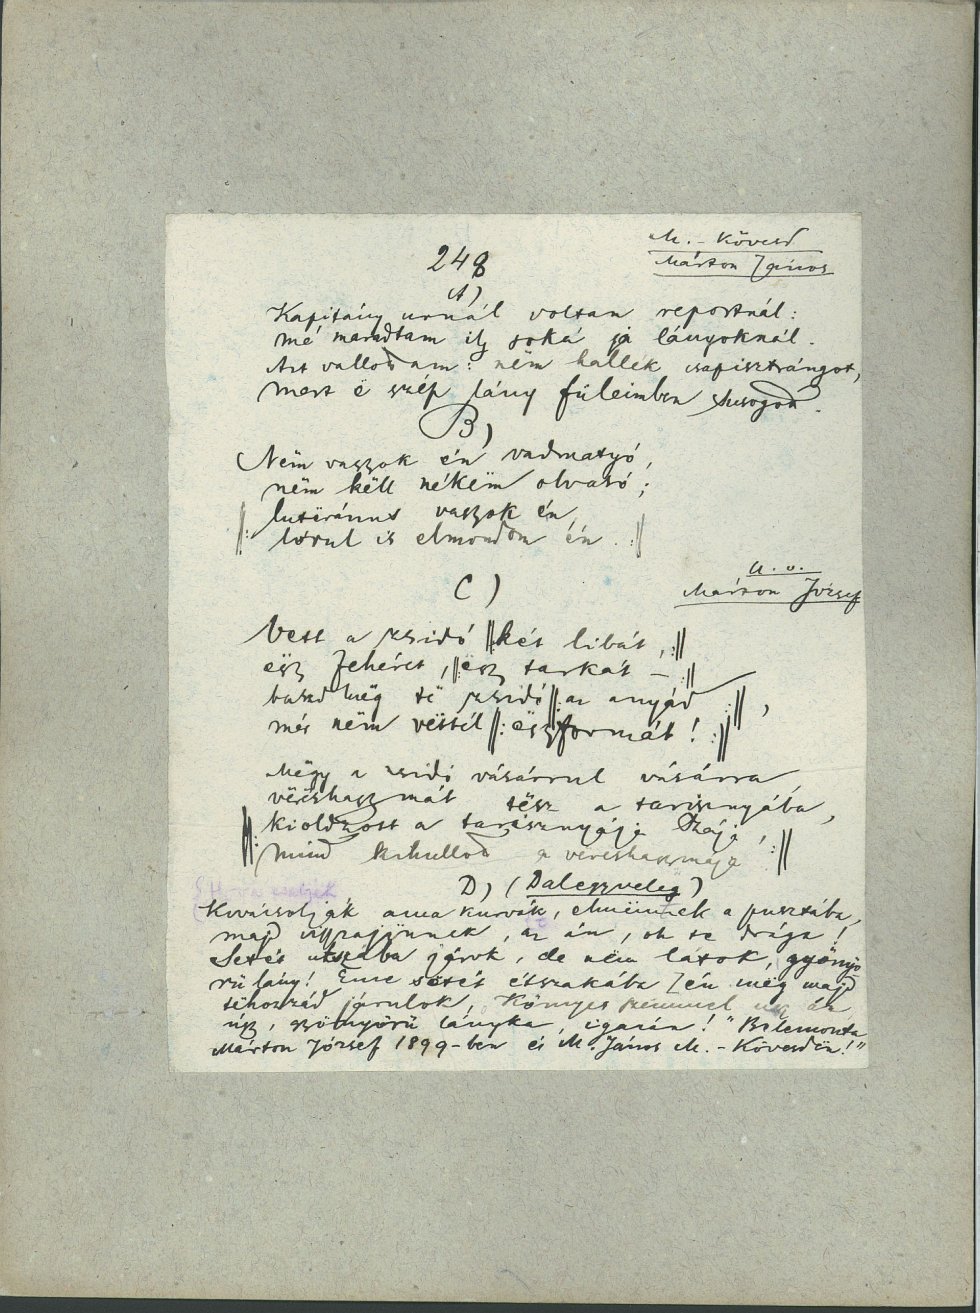 M. - Kövesd
Márton János
248
A)
Kapitány urnál voltam reportnál:
mé maradtam ity soká já lányoknál.
Azt vallottam: nëm hallék csapisztrángot,
mert ë szép lány füleimben susogott.
B)
Nëm vaszok én vadmatyó,
nëm këll nékëm olvasó;
||: lutëránus vaszok én,
lórul is elmondom én. :||
U. o.
Márton József
C)
Vett a zsidó ||: két libát, :||
ësz fehéret, ||: ësz tarkát - :||
baszd mëg të zsidó ||: az anyád :||,
més nëm vëttél ||: ëszformát! :||
Mëgy a zsidó vásárrul vásárra,
vërëshaszmát tësz a tarisznyába,
||: kioldzott a tarisznyája szája,
mind kihullott a vereshaszmája! :||
D) (Daleszveleg)
Kovácsolják ama kurvák, elmënnek a pusztába,
majd visszajönnek, az án, oh te drága!
Setét utszába járok, de nëm látok, gyönyö-
rü lány! Eme setét étszakába én még majd
tëhozzád járulok, Könnyes szëmmel az án
úsz, szönyörü lányka, igazán!" Bélemonta
Márton József 1899-ben és M. János M. - Kövesdën!"